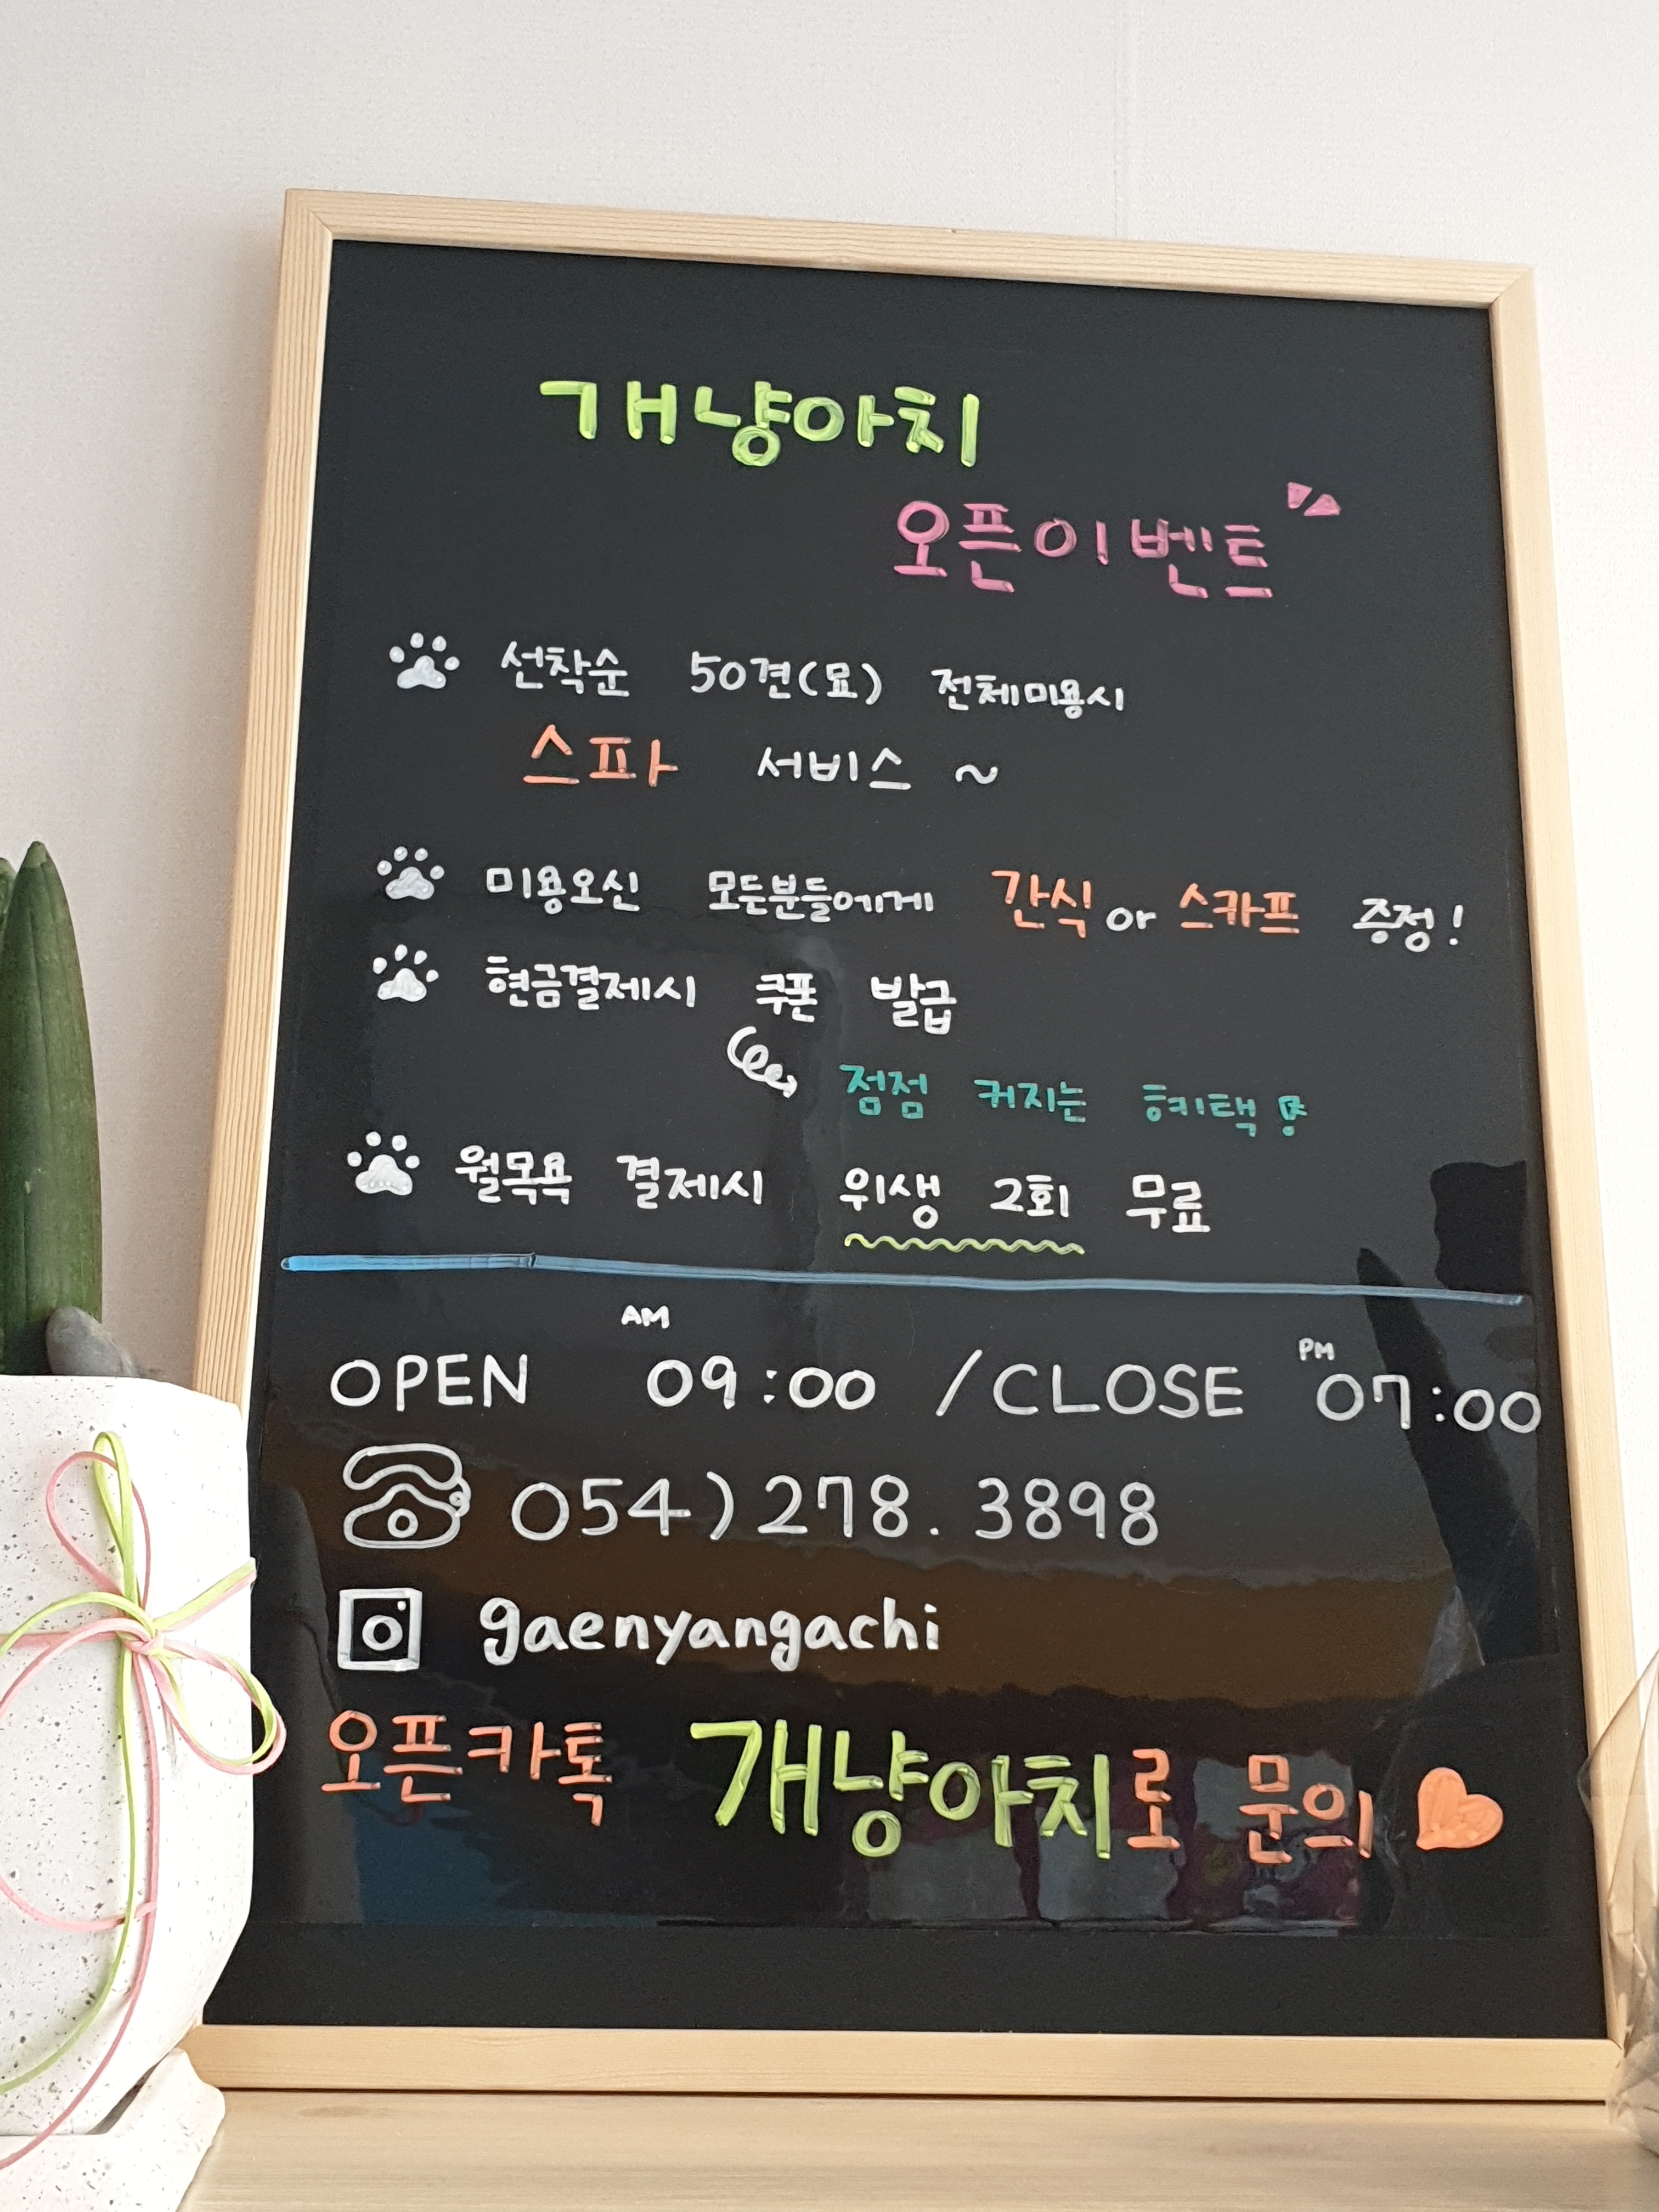 개냥아치
오픈이벤트
선착순 50견(묘) 전체미용시
스파 서비스 ~
미용오신 모든분들에게 간식 or 스카프 증정!
현금결제시 쿠폰 발급
점점 커지는 혜택!
월목욕 결제시 위생 2회 무료
OPEN AM 09:00 / CLOSE PM 07:00
054) 278. 3898
gaenyangachi
오픈카톡 개냥아치로 문의